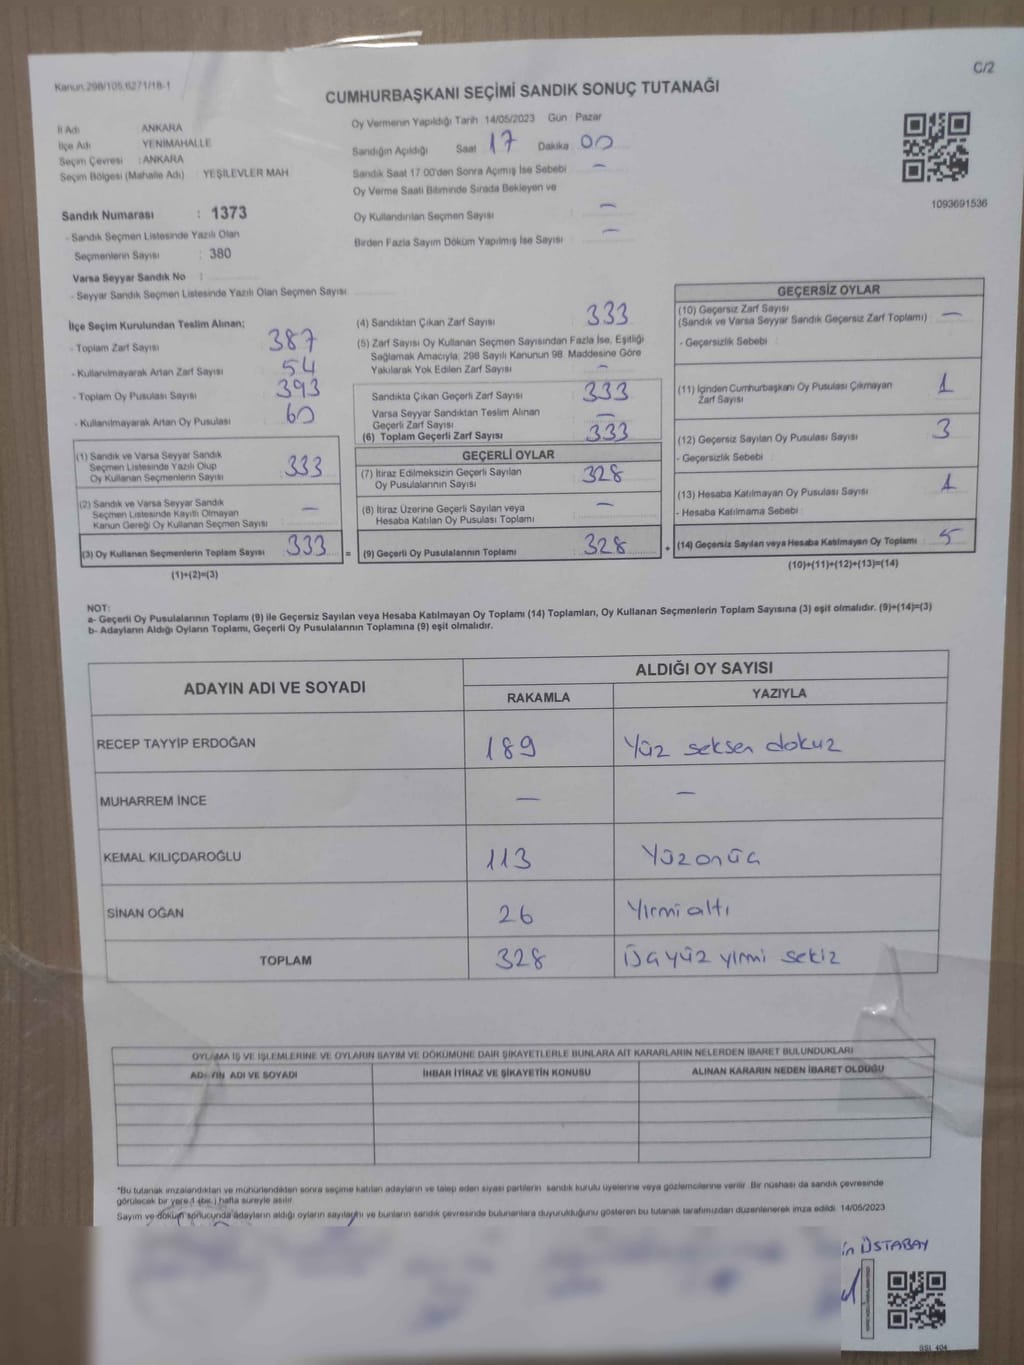 Kanun:298/105,6271/18-1
C/2
CUMHURBAŞKANI SEÇİMİ SANDIK SONUÇ TUTANAĞI
İl Adı ANKARA
İlçe Adı YENİMAHALLE
Seçim Çevresi : ANKARA
Seçim Bölgesi (Mahalle Adı) : YEŞİLEVLER MAH.
Sandık Numarası : 1373
- Sandık Seçmen Listesinde Yazılı Olan
Seçmenlerin Sayısı : 380
Varsa Seyyar Sandık No :
- Seyyar Sandık Seçmen Listesinde Yazılı Olan Seçmen Sayısı:
Oy Vermenin Yapıldığı Tarih 14/05/2023 Gün : Pazar
Sandığın Açıldığı Saat 17 Dakika 00
Sandık Saat 17.00'den Sonra Açımış İse Sebebi : —
Oy Verme Saati Bitiminde Sırada Bekleyen ve
Oy Kullandırılan Seçmen Sayısı : —
Birden Fazla Sayım Döküm Yapılmış İse Sayısı : —
1093691536
İlçe Seçim Kurulundan Teslim Alınan;
- Toplam Zarf Sayısı : 387
- Kullanılmayarak Artan Zarf Sayısı : 54
- Toplam Oy Pusulası Sayısı : 393
- Kullanılmayarak Artan Oy Pusulası : 60
(1) Sandık ve Varsa Seyyar Sandık
Seçmen Listesinde Yazılı Olup
Oy Kullanan Seçmenlerin Sayısı : 333
(2) Sandık ve Varsa Seyyar Sandık
Seçmen Listesinde Kayıtlı Olmayan
Kanun Gereği Oy Kullanan Seçmen Sayısı : —
(3) Oy Kullanan Seçmenlerin Toplam Sayısı : 333 =
(1)+(2)=(3)
(4) Sandıktan Çıkan Zarf Sayısı : 333
(5) Zarf Sayısı Oy Kullanan Seçmen Sayısından Fazla İse, Eşitliği
Sağlamak Amacıyla, 298 Sayılı Kanunun 98. Maddesine Göre
Yakılarak Yok Edilen Zarf Sayısı : —
Sandıkta Çıkan Geçerli Zarf Sayısı : 333
Varsa Seyyar Sandıktan Teslim Alınan
Geçerli Zarf Sayısı : —
(6) Toplam Geçerli Zarf Sayısı : 333
GEÇERLİ OYLAR
(7) İtiraz Edilmeksizin Geçerli Sayılan
Oy Pusulalarının Sayısı : 328
(8) İtiraz Üzerine Geçerli Sayılan veya
Hesaba Katılan Oy Pusulası Toplamı : —
(9) Geçerli Oy Pusulalarının Toplamı : 328 +
GEÇERSİZ OYLAR
(10) Geçersiz Zarf Sayısı
(Sandık ve Varsa Seyyar Sandık Geçersiz Zarf Toplamı) : —
- Geçersizlik Sebebi :
(11) İçinden Cumhurbaşkanı Oy Pusulası Çıkmayan
Zarf Sayısı : 1
(12) Geçersiz Sayılan Oy Pusulası Sayısı : 3
- Geçersizlik Sebebi :
(13) Hesaba Katılmayan Oy Pusulası Sayısı : 1
- Hesaba Katılmama Sebebi :
(14) Geçersiz Sayılan veya Hesaba Katılmayan Oy Toplamı : 5
(10)+(11)+(12)+(13)=(14)
NOT:
a- Geçerli Oy Pusulalarının Toplamı (9) ile Geçersiz Sayılan veya Hesaba Katılmayan Oy Toplamı (14) Toplamları, Oy Kullanan Seçmenlerin Toplam Sayısına (3) eşit olmalıdır. (9)+(14)=(3)
b- Adayların Aldığı Oyların Toplamı, Geçerli Oy Pusulalarının Toplamına (9) eşit olmalıdır.
ADAYIN ADI VE SOYADI ALDIĞI OY SAYISI
RAKAMLA YAZIYLA
RECEP TAYYİP ERDOĞAN 189 Yüz seksen dokuz
MUHARREM İNCE — —
KEMAL KILIÇDAROĞLU 113 Yüzonüç
SİNAN OĞAN 26 Yirmi altı
TOPLAM 328 Üçyüz yirmi sekiz
OYLAMA İŞ VE İŞLEMLERİNE VE OYLARIN SAYIM VE DÖKÜMÜNE DAİR ŞİKAYETLERLE BUNLARA AİT KARARLARIN NELERDEN İBARET BULUNDUKLARI
ADAYIN ADI VE SOYADI İHBAR İTİRAZ VE ŞİKAYETİN KONUSU ALINAN KARARIN NEDEN İBARET OLDUĞU
*Bu tutanak imzalandıktan ve mühürlendikten sonra seçime katılan adayların ve talep eden siyasi partilerin sandık kurulu üyelerine veya gözlemcilerine verilir. Bir nüshası da sandık çevresinde
görülecek bir yere 1 (bir ) hafta süreyle asılır.
Sayım ve döküm sonucunda adayların aldığı oyların sayılarını ve bunların sandık çevresinde bulunanlara duyurulduğunu gösteren bu tutanak tarafımızdan düzenlenerek imza edildi. 14/05/2023
in ÜSTABAY
SSİ. 404